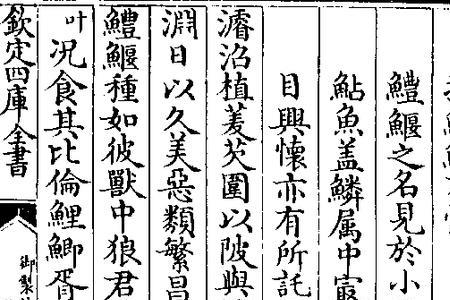 鱧鰋之名見於小
鮎魚盖鱗属中㝡
目興懷亦有所託
濬沼植菱芡圍以陂與
淵日以久美惡類繁昌
鱧鰋種如彼獸中狼君
叶况食其比倫鯉鯽胥
欽定四庫全書
御製